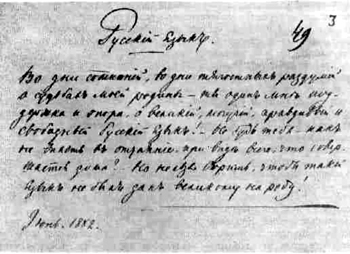 3
Русскій языкъ. 49
Во дни сомнѣній, во дни тягостныхъ раздумій
о судьбахъ моей родины – ты одинъ мнѣ под-
держка и опора, о великій, могучій, правдивый и
свободный Русскій языкъ! – Не будь тебя – какъ
не впасть въ отчаяніе, при видѣ всего, что совер-
шается дома? – Но нельзя вѣрить, чтобы такой
языкъ не былъ данъ великому народу!
Іюнь. 1882.